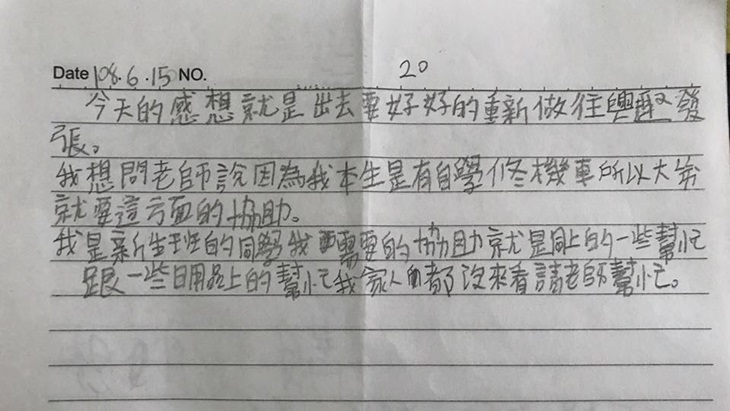 Date 108.6.15 NO. 20
今天的感想就是出去要好好的重新做往興發
張。
我想問老師說因為我本生是有自學修機車所以大第
就要這方面的協助。
我是新生班的同學我需要的協助就是同上的一些幫忙
跟一些日用品上的幫忙我家人都沒來看請老師幫忙。